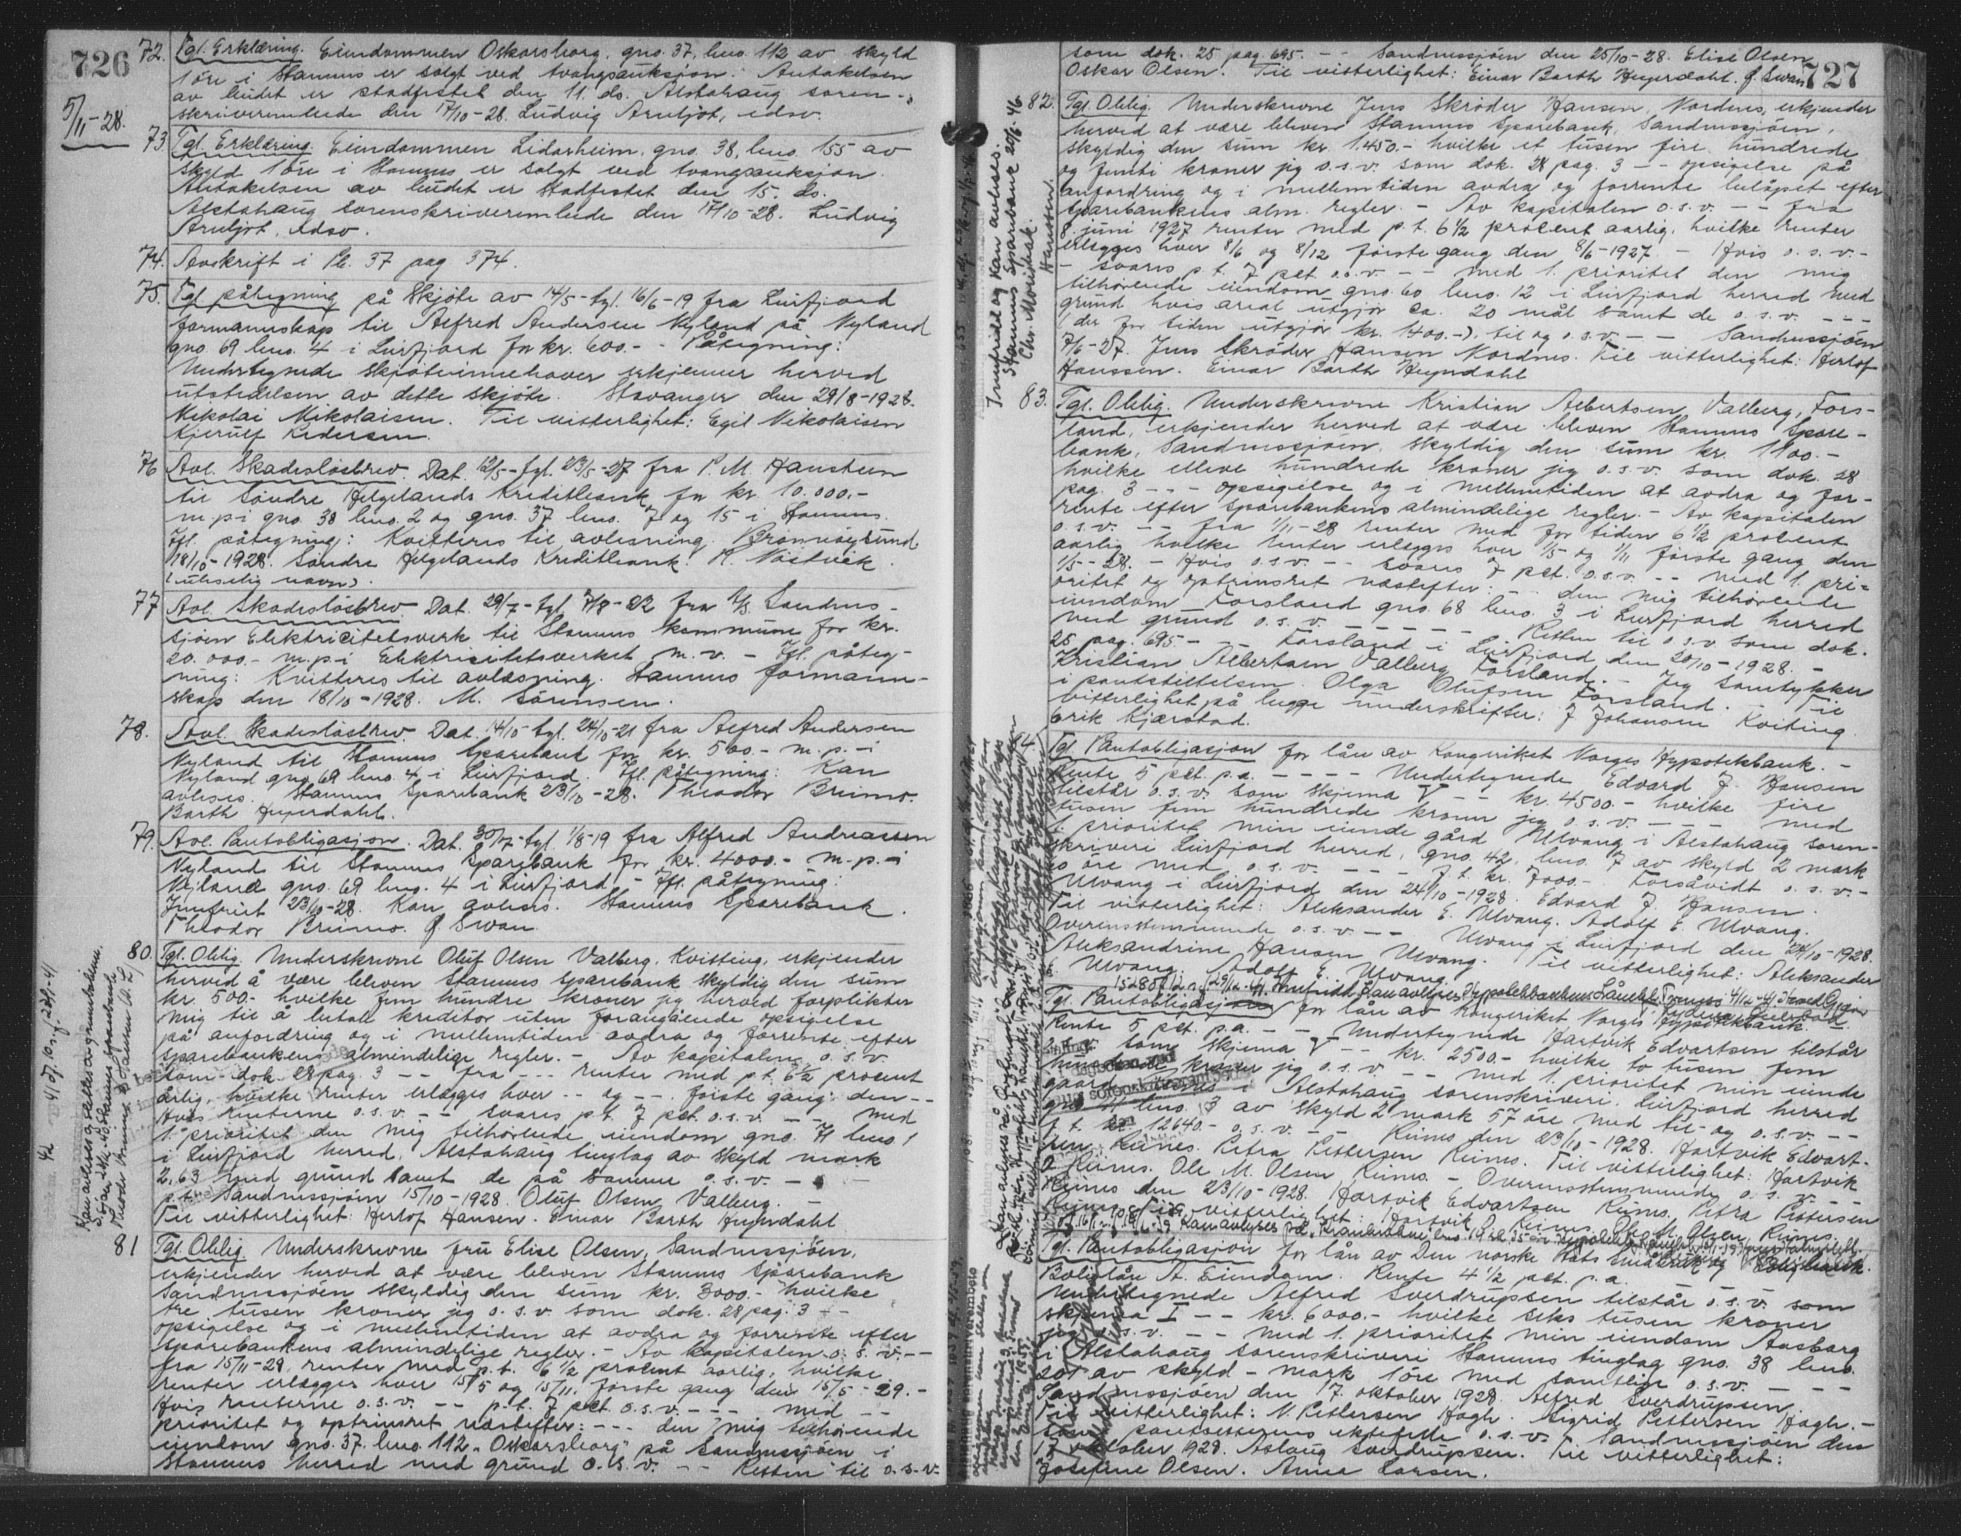 726
5/11-28.
72. Tgl. Erklæring. Eiendommen Oskarsborg, gno. 37, bno. 112 av skyld
1 øre i Stamnes er solgt ved tvangsauksjon. Antakelsen
av budet er stadfestet den 11. ds. Alstahaug soren-
skriverembede den 17/10-28. Ludvig Arntjot, edsv.
73. Tgl. Erklæring. Eiendommen Lidarheim, gno. 38, bno. 155 av
skyld 1 øre i Stamnes er solgt ved tvangsauksjon.
Antakelsen av budet er stadfestet den 15. ds.
Alstahaug sorenskriverembede den 17/10-28. Ludvig
Arntjot, edsv.
74. Avskrift i Pb. 37 pag 374.
75. Tgl påtegning på skjøte av 14/5- tgl. 16/6-19 fra Leirfjord
formannskap til Alfred Andersen Nyland på Nyland
gno 69 bno. 4 i Leirfjord for kr. 600.- - Påtegning:
Undertegnede skjøteinnehaver erkjenner herved
utstedelsen av dette skjøte. Stavanger den 29/8-1928.
Nikolai Nikolaisen. Til vitterlighet: Egil Nikolaisen
Kjerulf Pedersen.
76 Avl. Skadesløsbrev. Dat. 12/5- tgl. 23/5-27 fra P. M. Hansteen
til Søndre Helgelands Kreditbank for kr. 10.000.-
m.p.i gno. 38 bno. 2 og gno. 37 bno. 7 og 15 i Stamnes.
Ifl. påtegning: Kvitteres til avlesning. Brønnøysund
18/10-1928. Søndre Helgelands Kreditbank. K. Nostvick.
(uleselig navn).
77 Avl. Skadesløsbrev. Dat. 29/7- tgl. 7/8-22 fra A/S Sandnes-
sjøen Elektricitetsverk til Stamnes kommune for kr.
20.000.- m.p.i Elektricitetsverket m.v. - Ifl. påteg-
ning: Kvitteres til avlæsning. Stamnes formann-
skap den 18/10-1928. M. Sørensen.
78. Avl. Skadesløsbrev. Dat. 14/10 tgl. 24/10-21 fra Alfred Andersen
Nyland til Stamnes Sparebank for kr. 500.- m.p.-i
Nyland gno. 69 bno. 4 i Leirfjord. Ifl. påtegning: Kan
avleses. Stamnes Sparebank 23/10-28. Theodor Brinno.
Barth Heyerdahl.
79. Avl. Pantobligasjon. Dat. 30/7- tgl. 1/8-19 fra Alfred Andreassen
Nyland til Stamnes Sparebank for kr. 4000.- m.p.-i
Nyland gno. 69 bno. 4 i Leirfjord. - Ifl. påtegning:
Innfriet 23/10-28. Kan avleses. Stamnes Sparebank.
Theodor Brinno. J Swan.
80. Tgl. Oblig. Underskrevne Oluf Olsen Valberg, Kvitting, erkjender
herved å være bleven Stamnes Sparebank skyldig den sum
kr. 500.- hvilke fem hundre kroner jeg herved forplikter
mig til å betale kreditor uten forangående opsigelse
på anfordring og i mellemtiden avdra og forrente efter
sparebankens almindelige regler. - Av kapitalen o.s.v.
som dok. 28 pag. 3 -- fra --- renter med p.t. 6½ procent
årlig, hvilke renter erlegges hver -- og --. første gang: den --
Hvis renterne o.s.v. -- svares p.t. 7 pct. o.s.v. -- med
1. prioritet den mig tilhørende eiendom gno. 71 bno. 1
i Leirfjord herred, Alstahaug tinglag av skyld mark
2,63 med grund samt de på samme o.s.v. -
p.t. Sandnessjøen 15/10-1928. Oluf Olsen Valberg. -
Til vitterlighet: Herlof Hansen. Einar Barth Heyerdahl
81 Tgl. Oblig. Underskrevne fru Elise Olsen, Sandnessjøen,
erkjender herved at være bleven Stamnes Sparebank
Sandnessjøen skyldig den sum kr. 3000.- hvilke
tre tusen kroner jeg o.s.v. som dok. 28 pag. 3 --
opsigelse og i mellemtiden at avdra og forrente efter
sparebankens almindelige regler. - Av kapitalen o.s.v. --
fra 15/11-29. renter med p.t. 6½ procent aarlig, hvilke
renter erlægges hver 15/5 og 15/11. første gang den 15/5-29.-
Hvis renterne o.s.v. -- p.t. 7 pct o.s.v. --- med --
prioritet og optrinsret næstefter: --- den mig tilhørende
eiendom gno. 37. bno. 112 "Oskarsborg" på Sandnessjøen i
Stamnes herred med grund o.s.v. -- Retten til o.s.v.
727
som dok. 25 pag 695. -- Sandnessjøen den 25/10-28. Elise Olsen
Oskar Olsen. Til vitterlighet: Einar Barth Heyerdahl. J. Swan
82. Tgl. Oblig. Underskrevne Jens Skrøder Hansen, Nordnes, erkjender
herved at være bleven Stamnes Sparebank, Sandnessjøen,
skyldig den sum kr. 1450.- hvilke et tusen fire hundrede
og femti kroner jeg o.s.v. som dok. 28 pag. 3 -- opsigelse på
anfordring og i mellemtiden avdra og forrente beløpet efter
sparebankens alm. regler. - Av kapitalen o.s.v. -- fra
8. juni 1927 renter med p.t. 6½ procent aarlig, hvilke renter
erlegges hver 8/6 og 8/12 første gang den 8/6-1927 - Hvis o.s.v. -
- svares p.t. 7 pct o.s.v. -- med 1. prioritet den mig
tilhørende eiendom gno. 60 bno. 12 i Leirfjord herred med
grund hvis areal utgjør ca. 20 mål samt de o.s.v. ---
(der for tiden utgjør kr. 1400.-) til og o.s.v. -- Sandnessjøen
7/6-27. Jens Skrøder Hansen Nordnes. Til vitterlighet: Herlof
Hanssen. Einar Barth Heyerdahl
83. Tgl. Oblig. Underskrevne Kristian Albertsen Valberg, Fors-
land, erkjender herved at være bleven Stamnes Spare-
bank, Sandnessjøen, skyldig den sum kr. 1100.-
hvilke elleve hundrede kroner jeg o.s.v. som dok. 28
pag. 3 --- opsigelse og i mellemtiden at avdra og for-
rente efter sparebankens almindelige regler. - Av kapitalen
o.s.v. -- fra 1/11-28 renter med for tiden 6½ procent
aarlig hvilke renter erlegges hver 1/5 og 1/11 første gang den
1/5-28. - Hvis o.s.v. -- svares 7 pct. o.s.v. -- med 1. pri-
oritet og optrinsret næstefter: -- den mig tilhørende
eiendom Forsland gno. 68 bno. 3 i Leirfjord herred
med grund o.s.v. ----- Retten til o.s.v. som dok.
25 pag. 695 -- Forsland i Leirfjord den 20/10-1928. -
Kristian Albertsen Valberg Forsland. - Jeg samtykker
i pantstiftelsen. Olga Olufsen Forsland. - Til
vitterlighet på begge underskrifter: J Johansen Kviting.
Erik Kjærstad.
84. Tgl. Pantobligasjon for lån av Kongeriket Norges Hypotekbank. -
Rente 5 pct. p.a. ---- Undertegnede Edvard J. Hansen
tilstår o.s.v. som skjema V -- kr. 4500.- hvilke fire
tusen fem hundrede kroner jeg o.s.v. --- med
1. prioritet min eiende gård Ulvang i Alstahaug soren-
skriveri Leirfjord herred, gno. 42, bno. 7 av skyld 2 mark
o øre med o.s.v. --- f.t. kr. 7000.- Forsåvidt o.s.v. -
Ulvang i Leirfjord den 24/10-1928. Edvard J. Hansen.
Til vitterlighet: Aleksander E. Ulvang. Adolf E. Ulvang.
Overensstemmende o.s.v. -- Ulvang i Leirfjord den 24/10-1928.
Aleksandrine Hansen Ulvang. Til vitterlighet: Aleksander
E. Ulvang. Adolf E. Ulvang.
Tgl. Pantobligasjon for lån av Kongeriket Norges Hypotekbank.
Rente 5 pct. p.a. -- Undertegnede Hartvik Edvartsen tilstår
o.s.v. som skjema V -- kr. 2500.- hvilke to tusen fem
hundrede kroner jeg o.s.v. --- med 1. prioritet min eiende
gaard i Alstahaug sorenskriveri, Leirfjord herred
bno. 3 av skyld 2 mark 57 øre med til- og o.s.v. --
f.t. kr. 12640.- o.s.v. -- Reines den 23/10-1928. Hartvik Edvart-
sen Reines. Petra Pettersen Reines. Til vitterlighet: Hartvik
O Reines. Ole M. Olsen Reines. - Overensstemmende o.s.v. --
Reines den 23/10-1928. Hartvik Edvartsen Reines. Petra Pettersen
Reines. Til vitterlighet: Hartvik O. Reines. Ole M. Olsen Reines.
Tgl. Pantobligasjon for lån av Den norske Stats Småbruk og Boligbank.
Boliglån A. Eiendom. Rente 4½ pct. p.a.
Undertegnede Alfred Sverdrupsen tilstår o.s.v. som
skjema I -- kr. 6000.- hvilke seks tusen kroner
jeg o.s.v. -- med 1. prioritet min eiendom Aasborg
i Alstahaug sorenskriveri Stamnes tinglag gno. 38 bno.
201 av skyld - mark 1 øre med samtlige o.s.v. ---
Sandnessjøen den 7. oktober 1928. Alfred Sverdrupsen.
Til vitterlighet: N. Pettersen Hagh. Sigrid Pettersen Hagh. -
Som pantsetterens ektefelle o.s.v. Sandnessjøen den
13 oktober 1928. Aslaug Sverdrupsen. Til vitterlighet:
Josefine Olsen. Anna Larsen.
Innfridd og kan avleses.
Stamnes Sparebank 20/6-46
Chr. Mortsak.
Hanssen.